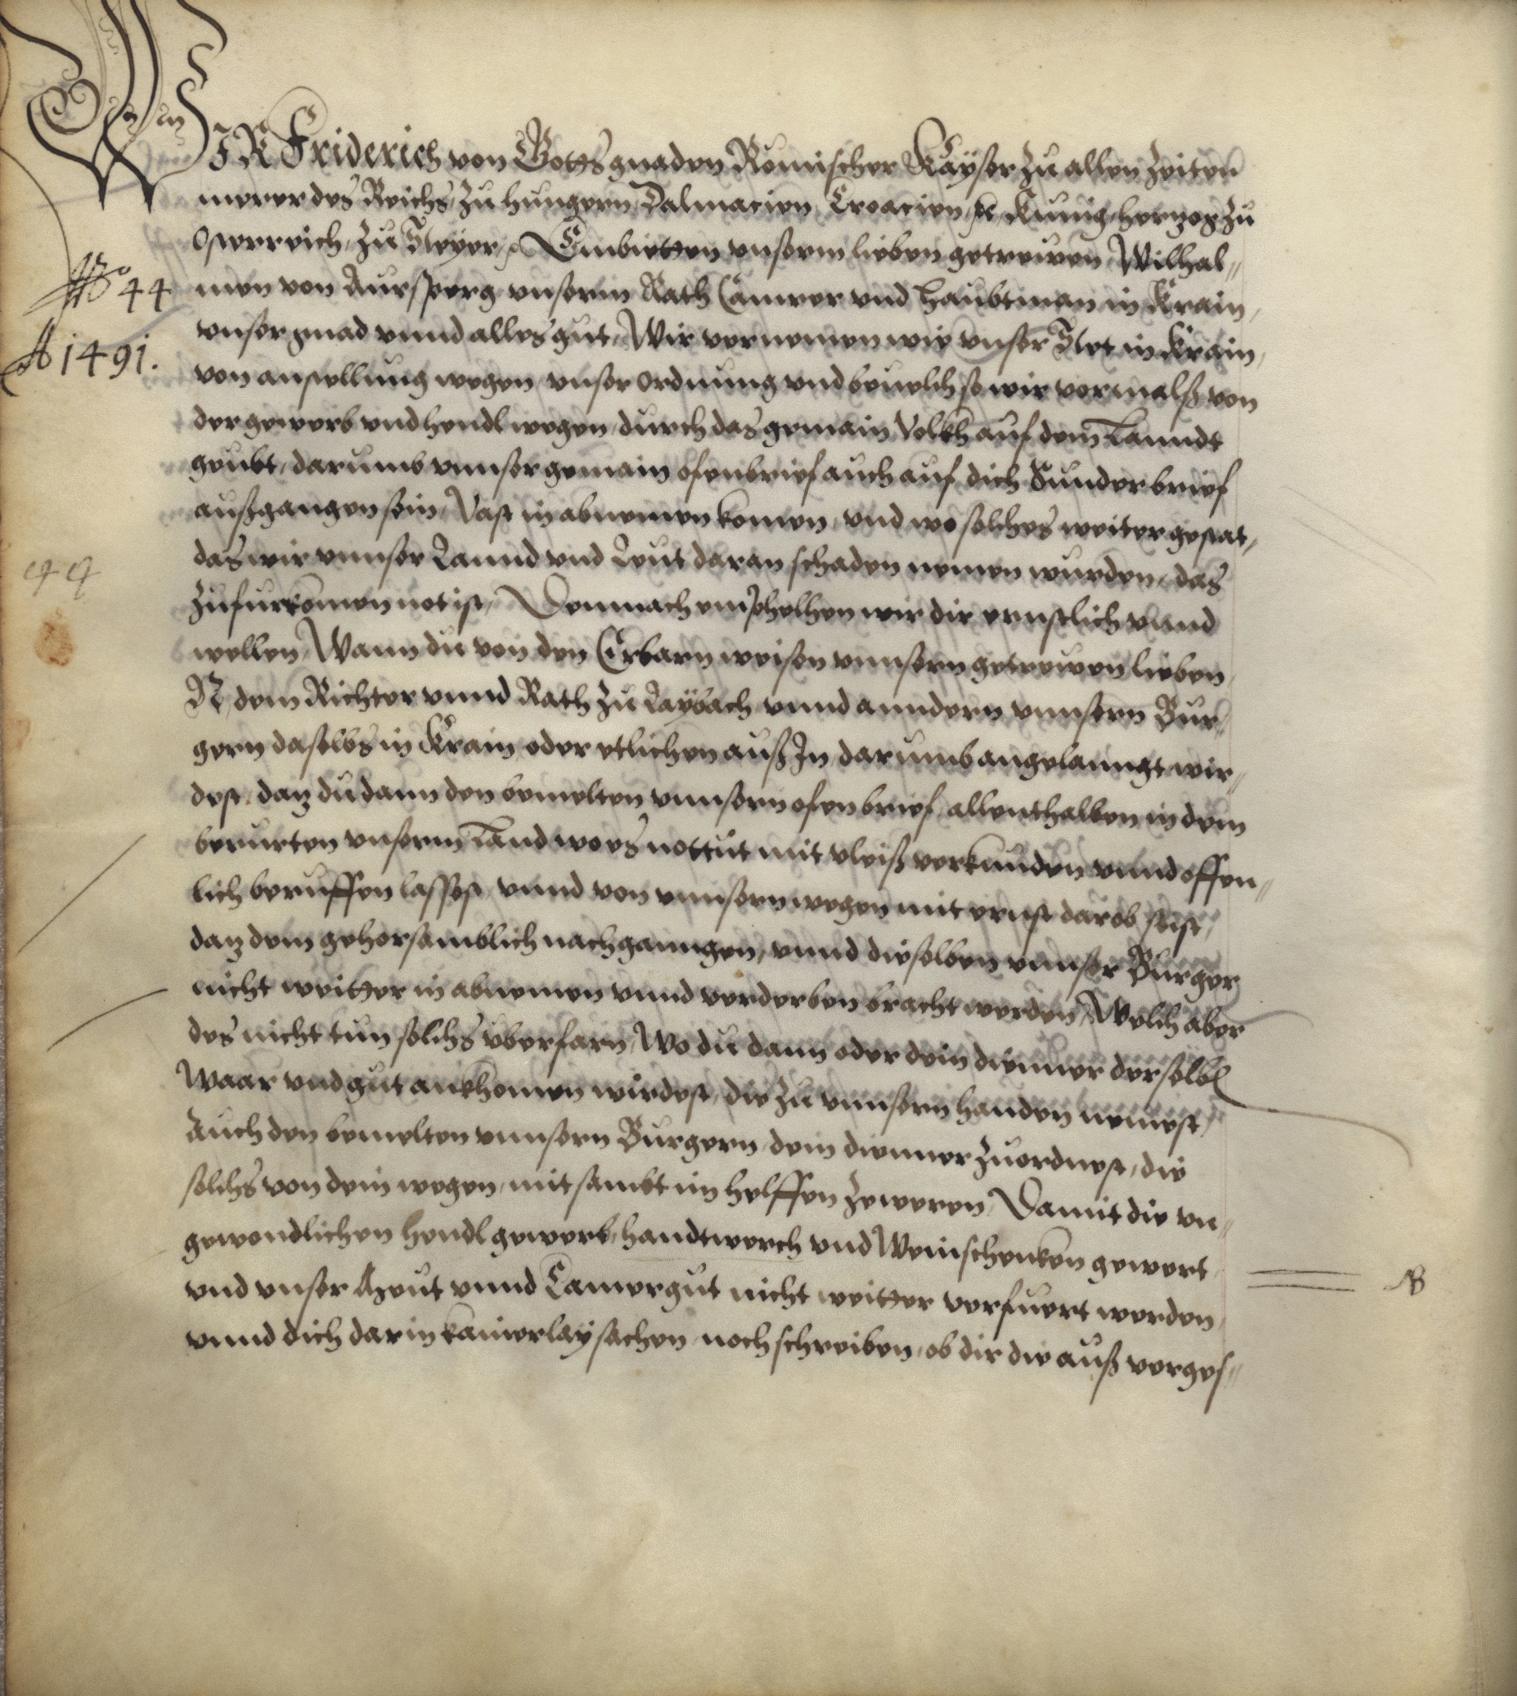 WIR Friderich von Gottes gnaden Römischer Kayser zu allen Zeiten
merer des Reichs, zu Hungern, Dalmacien, Croacien, ꝛc Kunig, Herzog zu
Osterreich, zu Steyer, ꝛc Embietten vnserm lieben getrewen Wilhal„
No 44
men von Aursperg vnserm Rath Camrer vnd Haubtman in Krain,
A 1491.
vnser gnad vnnd alles gut, Wir vernemen wie vnser Stet in Krain,
von anstellung wegen vnser ordnung vnd beuelch so wir vormalß von
der gewerb vnd hendl wegen, durch das gemain Volkh auf dem Lanndt
geubt, darumb vnnser gemain ofenbrief auch auf dich Sunder brief
außgangen sein, Vast in abnemen komen, vnd wo solches weiter gestat,
das wir vnnser Lannd vnd Leut daran schaden nemen wurden, das
44
zufurkomen not ist, Demnach emphelhen wir dir ernstlich vnnd
wellen, Wann du von den Erbarn weisen vnnsern getrewen lieben
N. dem Richter vnnd Rath zu Laybach vnnd anndern vnnsern Bur„
gern daselbs in Krain oder etlichen auß In darumb angelanngt wir„
dest, daz du dann den bemelten vnnsern ofen brief, allenthalben in dem
berurten vnserm Land wo es nottut mit vleiß verkunden vnnd offen„
lich beruffen lassest, vnnd von vnnsern wegen mit ernst darob seist,
daz dem gehorsamblich nachganngen, vnnd dieselben vnnser Burger
nicht weitter in abnemen vnnd verderben bracht werden, Welch aber
des nicht tun solchs vberfarn, Wo du dann oder dein dienner derselbn
Waar vnd gut ankhomen wirdest, die zu vnnsern handen nemest,
Auch den bemelten vnnsern Burgern, dein dienner zuordnest, die
solchs von dein wegen, mit sambt im helffen zeweren, Damit die vn„
gewondlichen hendl gewerb, handtwerch vnd Weinschenken gewert
NB
vnd vnser Leut vnnd Camergut nicht weitter verfuert werden,
vnnd dich darin kainerlay sachen, noch schreiben, ob dir die auß verges„